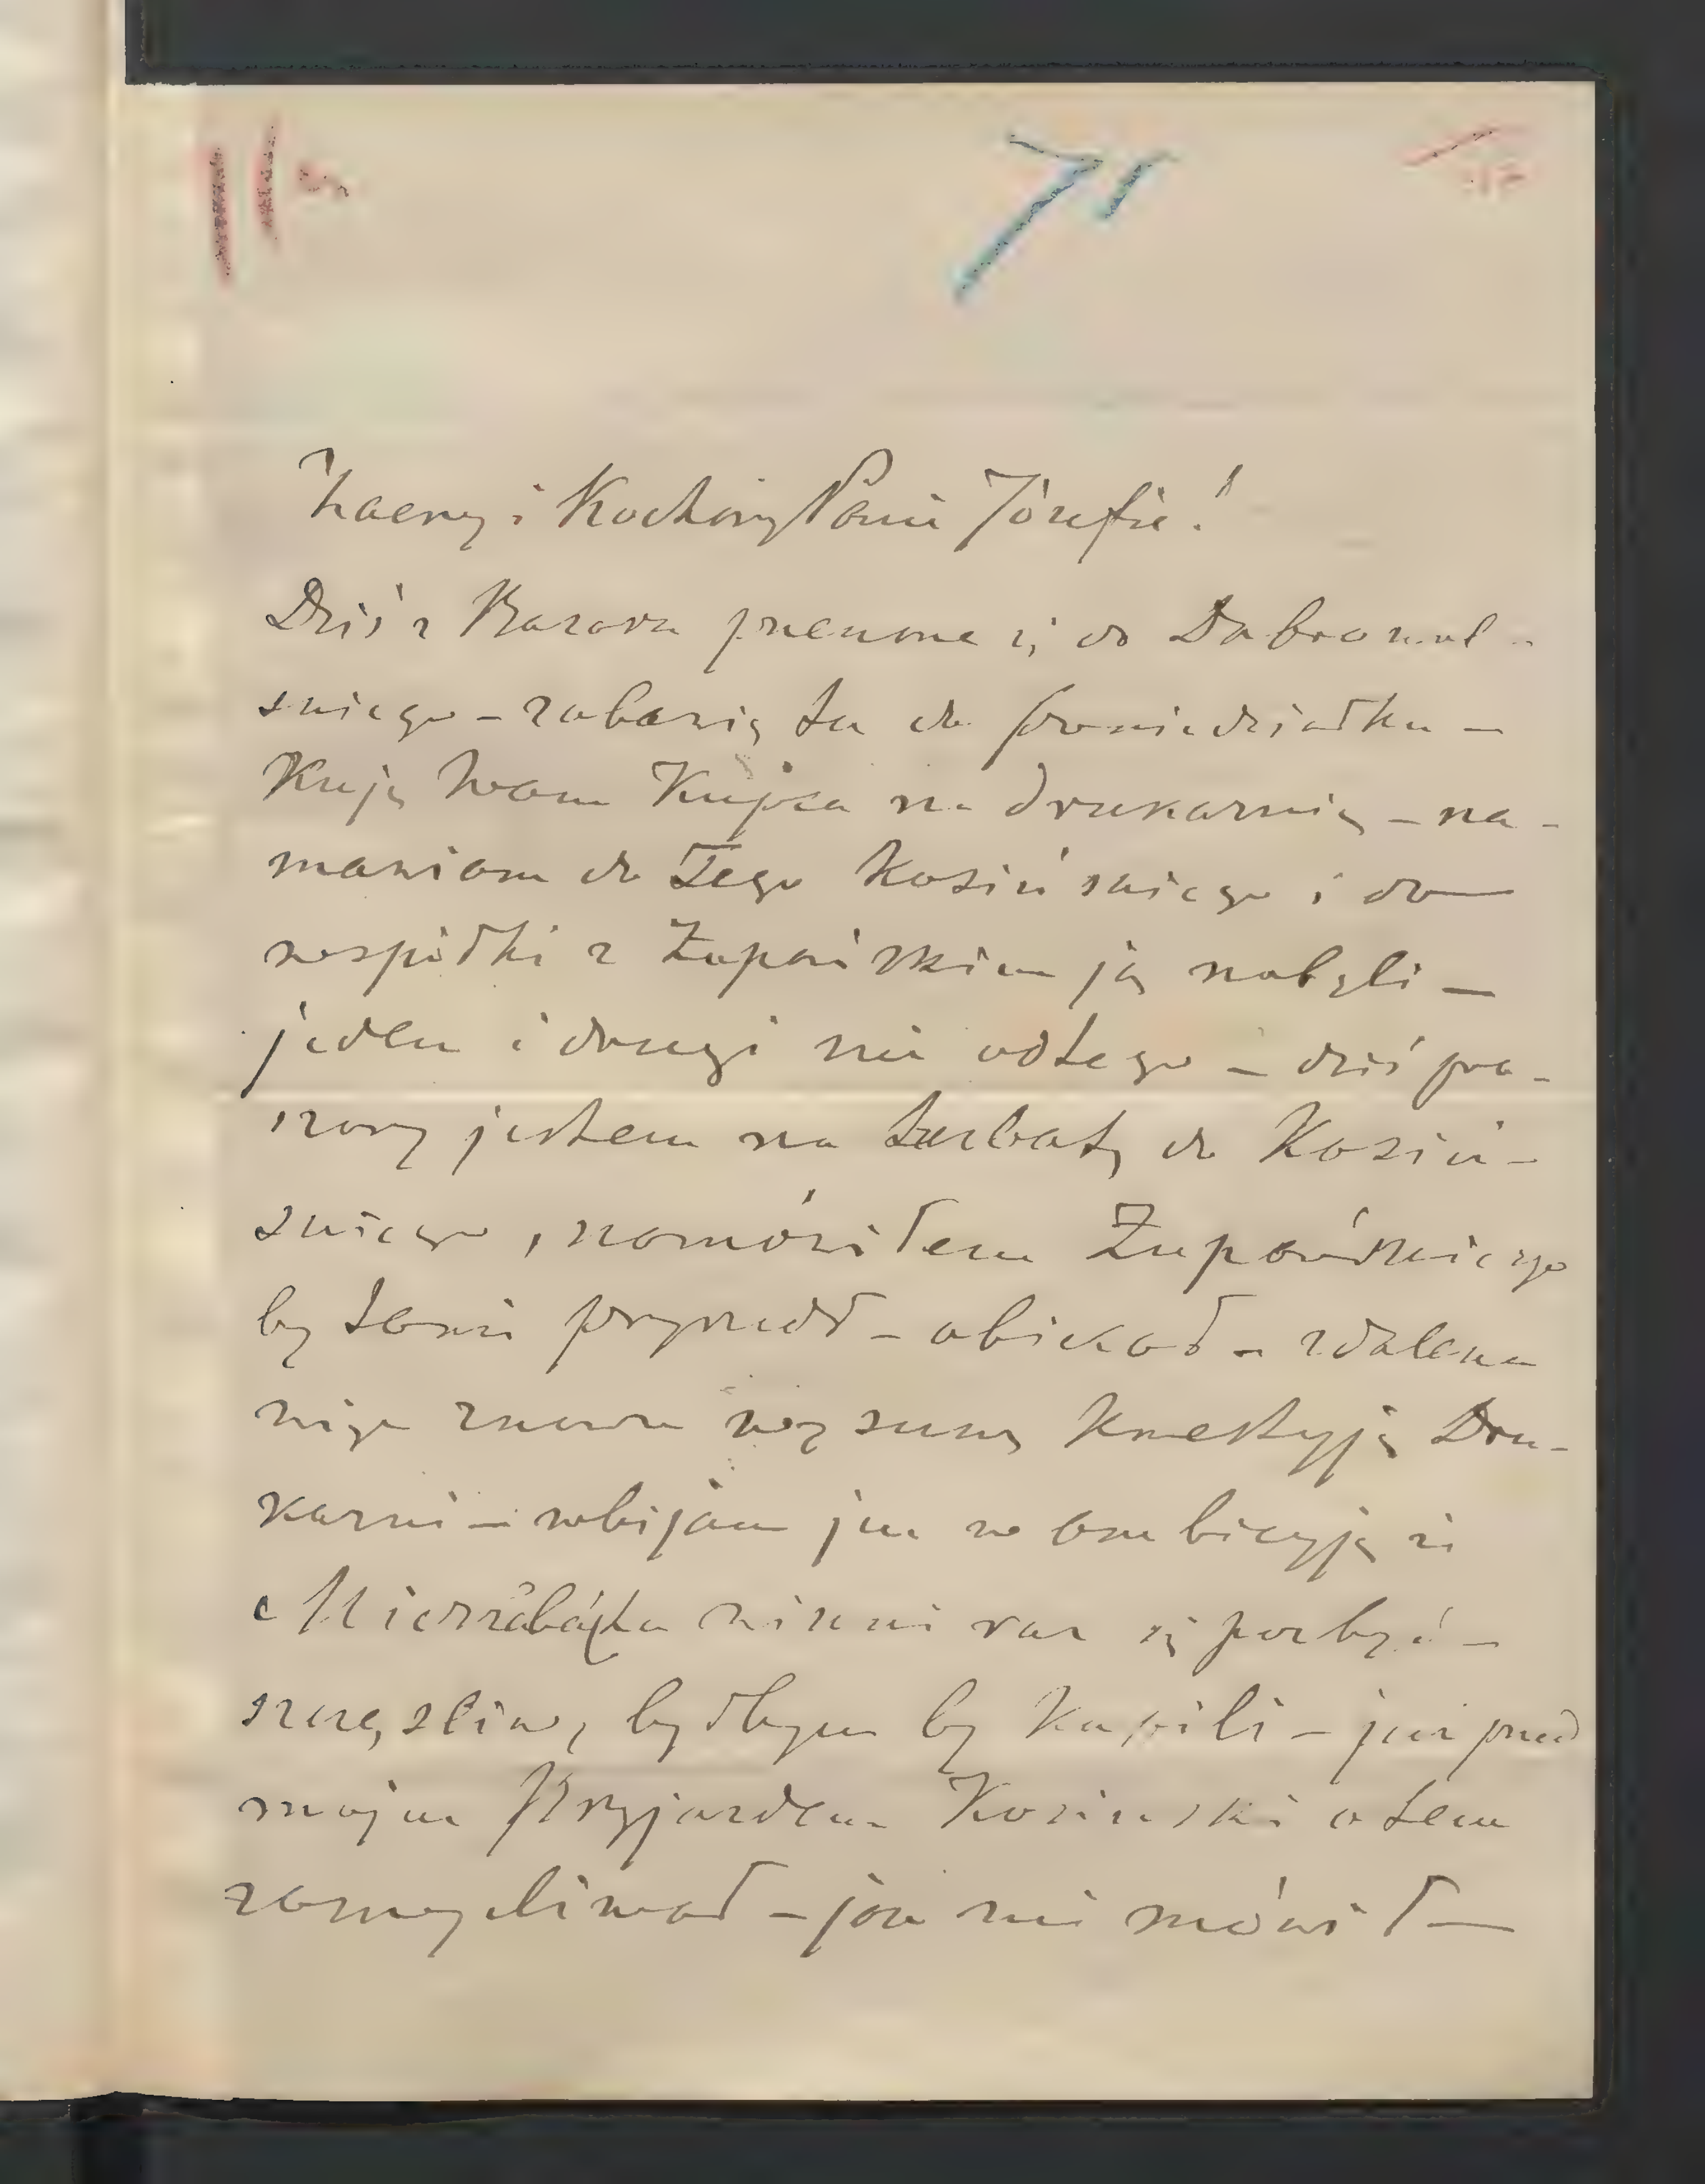 71
Zacny i Kochany Panie Józefie!
Dziś z Bazaru przenoszę się do Dobrowol-
skiego – zabawię tu do poniedziałku –
Kuję Wam Kupca na drukarnią – na-
mawiam do tego Kosińskiego i do
wespółki z Żupańskim ją nabyli –
jeden i drugi nie od tego – dziś pro-
szony jestem na herbatę do Kosiń-
skiego, namówiłem Żupańskiego
by tam przyszedł – obiecał – zdaleka
więc znowu wysunę kwestyją Dru-
karni – wbijam już w ambicyją że
Niemca winni raz się pozbyć –
szczęśliwy byłbym by kupili – już przed
mojem Przyjazdem Kosiński o tem
zamyśliwał – jak mi mówił –